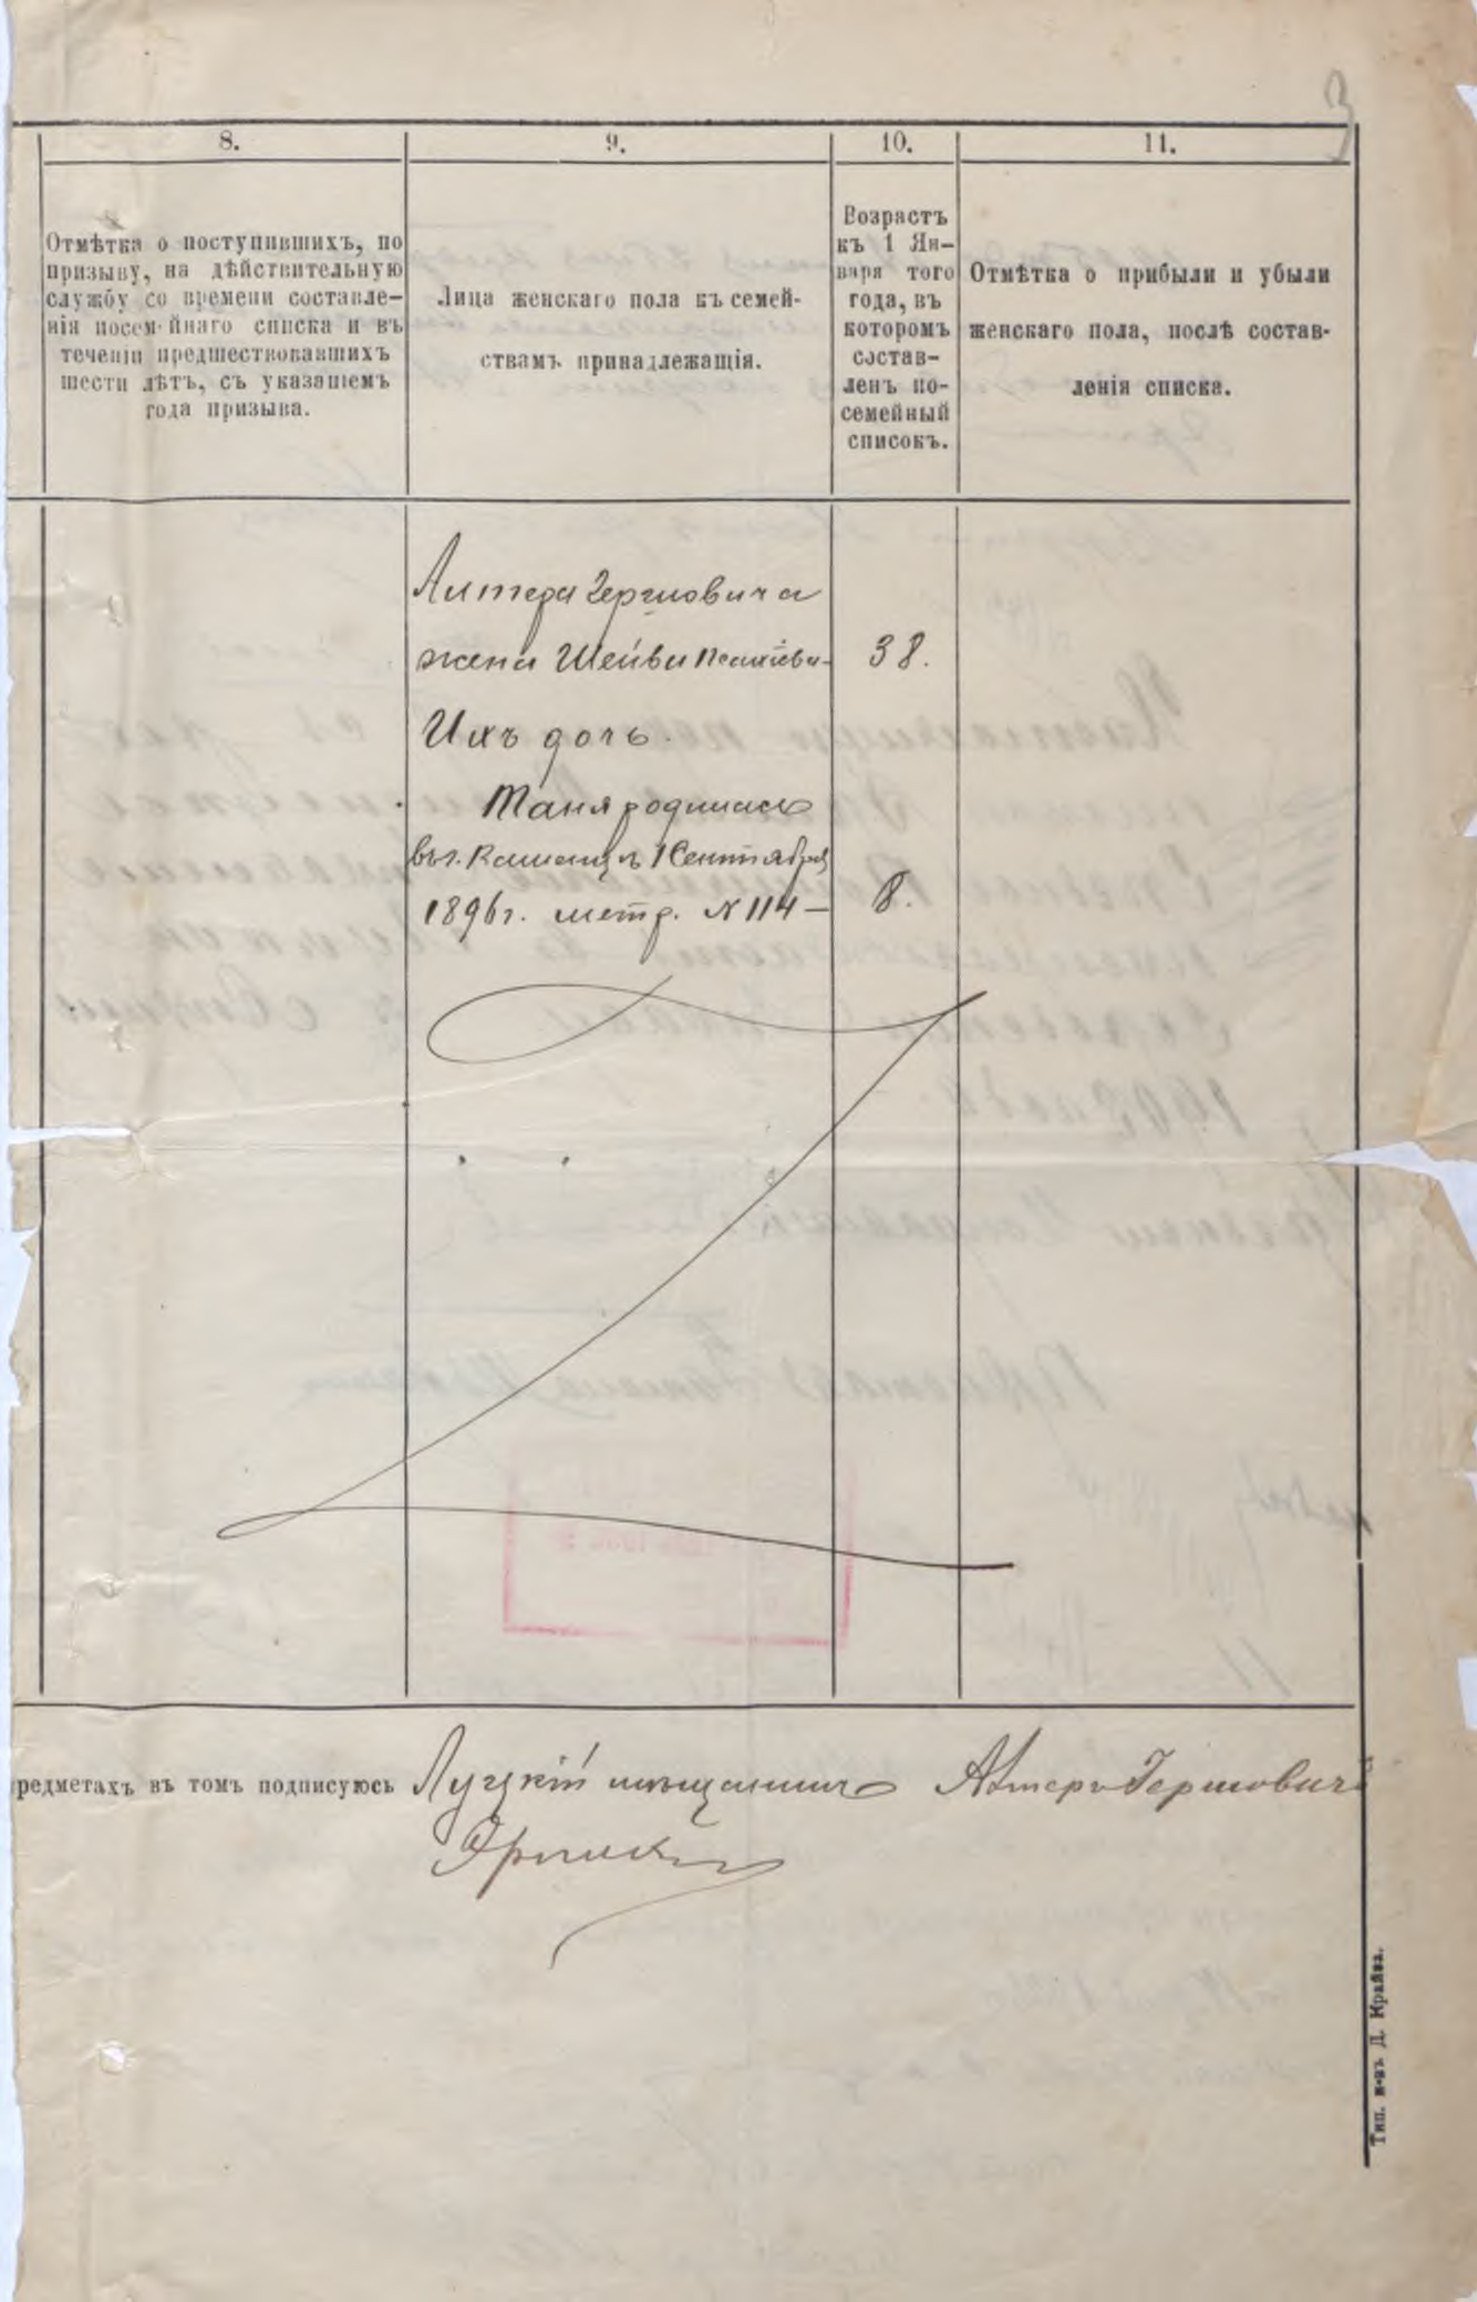 3
8.
9.
10.
11.
Отмѣтка о поступившихъ, по
призыву, на дѣйствительную
службу со времени составле-
нія посемейнаго списка и въ
теченіи предшествовавшихъ
шести лѣтъ, съ указаніемъ
года призыва.
Лица женскаго пола къ семей-
ствамъ принадлежащія.
Возрастъ
къ 1 Ян-
варя того
года, въ
которомъ
состав-
ленъ по-
семейный
списокъ.
Отмѣтка о прибыли и убыли
женскаго пола, послѣ состав-
ленія списка.
Алтера Гершовича
жена Шейва
38.
Ихъ дочь.
Таня родилась
въ г. 1 Сентября
1896 г. метр. № 114 —
8.
редметахъ въ томъ подписуюсь Луцкій мѣщанинъ Алтеръ Гершовичъ
Тип. н-въ Д. Крайза.